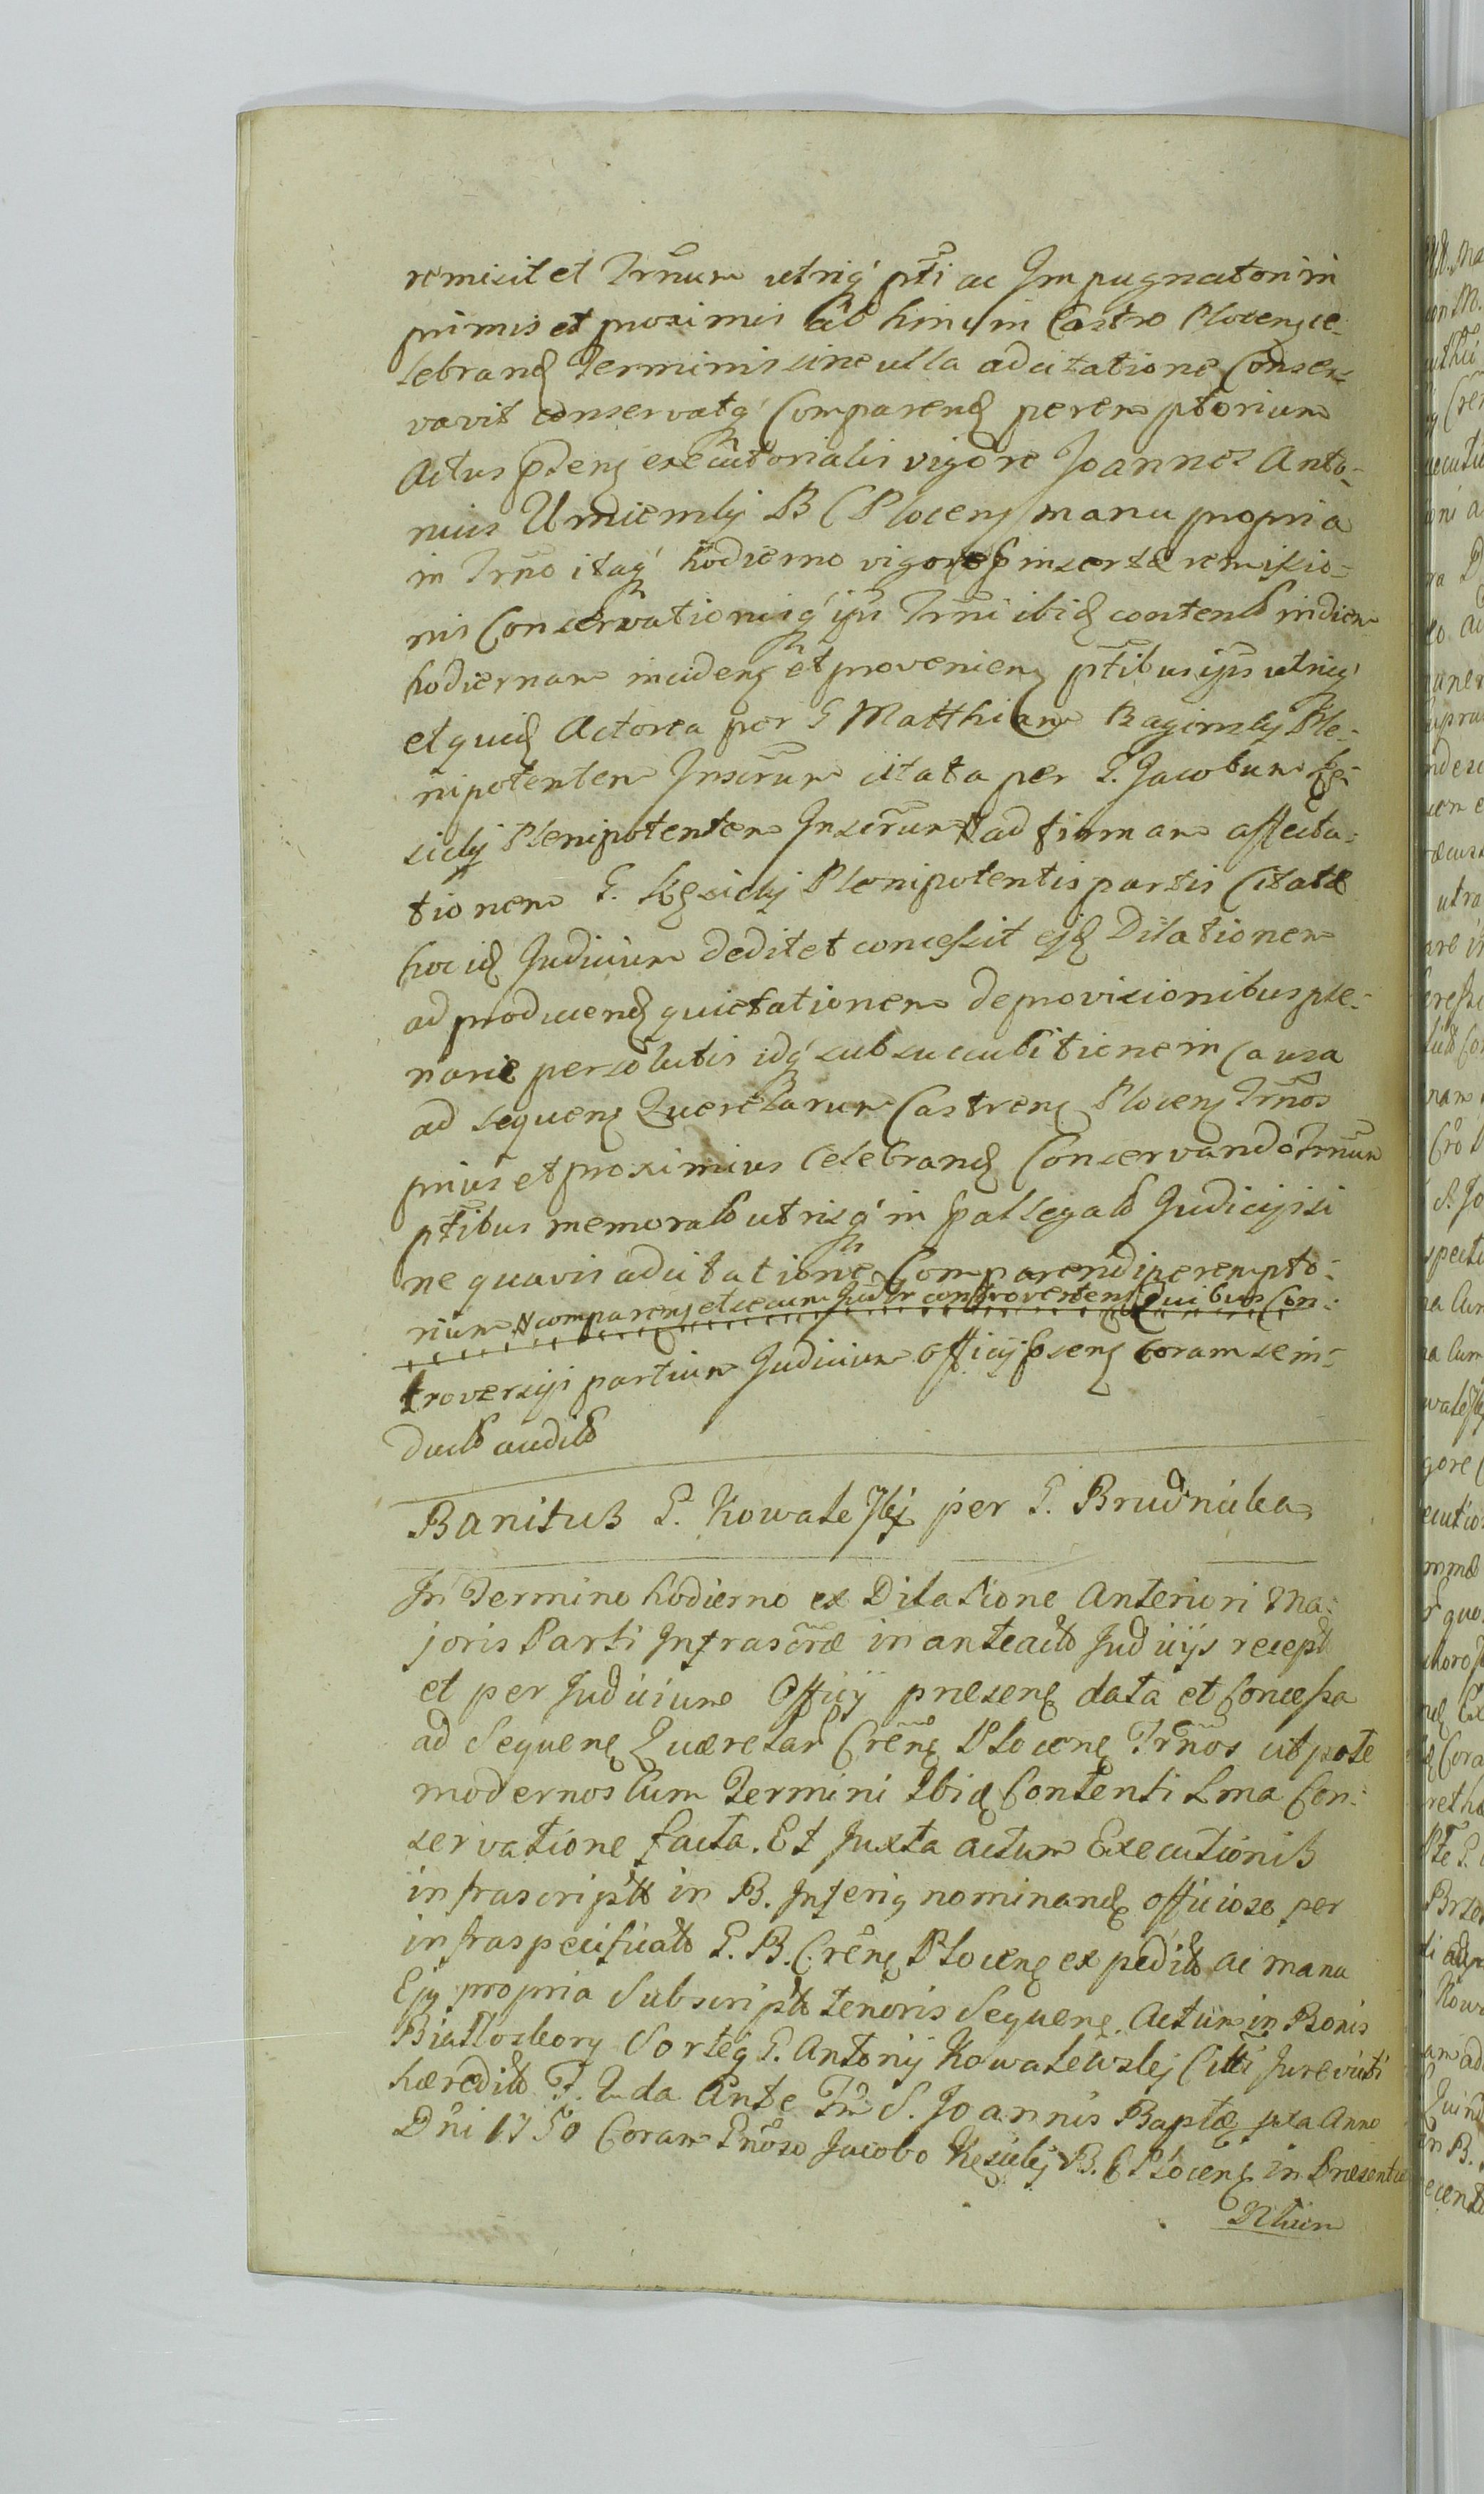 remisit et Trnum utriq' pti ac Impugnatori in
primis et proximis ab hinc in Castro Plocens ce-
lebrand Terminis sine ulla adcitatione Conser-
vavit conservatq' Comparend peremptorium
Actus pdens executorialis vigore Joannes Anto-
nius Umiemsky B C Plocens manu propria
in Trno itaq' hodierno vigore p inserta remissio-
nis Conservationisq' ipsi Trni ibid contento in diem
hodiernam incidens et provenien ptibus ipsis utrisq'
et quid Actorea per G Matthiam Ragimsky Ple-
nipotentem Inscrum citata per G. Jacobum Kę-
sicky Plenipotentem Inscrum # ad firmam affecta-
tionem G. Kęsicky Plenipotentis partis Citatæ
hoc id Judicium dedit et concessit ejd Dilationem
ad producend quietationem de provisionibus ple-
narie persolutis idq' sub succubitione in Causa
ad sequens Querelarum Castrens Plocens Trnos
prius et proximius celebrand Conservando Trnum
ptibus memorato utrisq' in pallegato Judicijs si
ne quavis adcitatione Comparendi perempto-
rium # comparens et secum Judr controvertens Quibus Con-
troversijs partium Judicium Officij psens coram se in-
ducto audito
Banitus G. Kowalesky per G. Brudnicka
In Termino hodierno ex Dilatione Anteriori Ma-
joris Parti Infrascræ in anteacto Judicijs recept
et per Judicium Officij præsens data et Concessa
ad Sequens Quærelar Crens Plocens Trnos utpote
modernos cum Termini Ibid Contenti Sma Con-
servatione facta. Et Juxta actum Executionis
infrascripto in B. Inferiq nominand officiose per
infraspecificato G. B. Crens Plocens expedito ac manu
Ejq propria Subscripto tenoris Sequens. Actum in Bonis
Białłoskory Sorteq G. Antonij Kowalewskj Citti Jurevicti
hæredito F. 2da Ante Fm S. Joannis Baptæ jxta Anno
Dni 1750 Coram Gnoso Jacobo Kęsickj B. C Plocens in Præsentia
Nlium